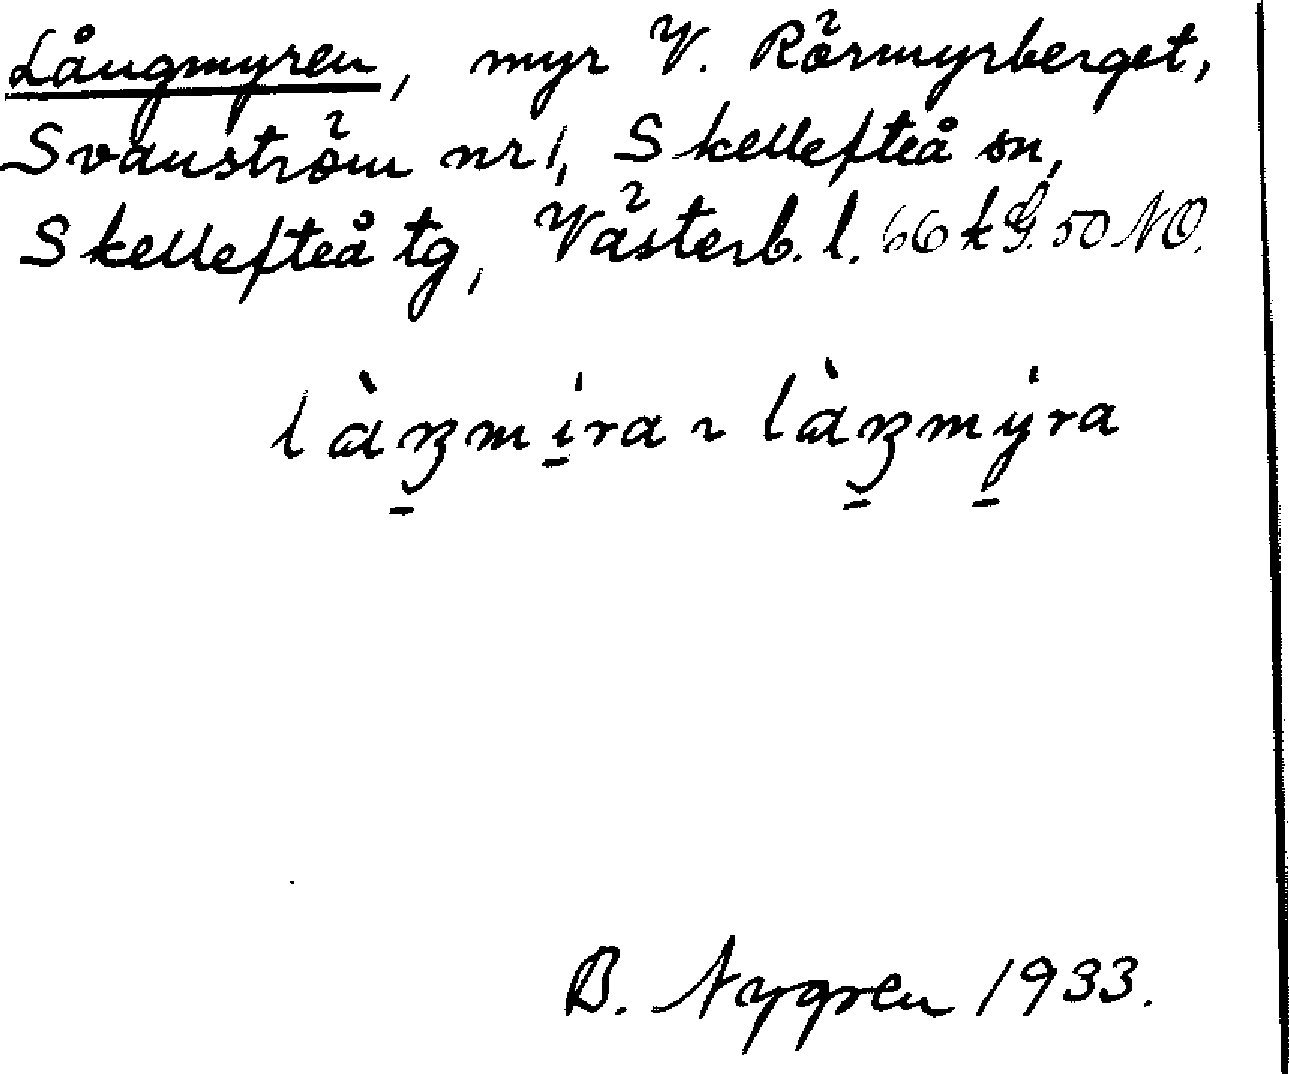 Långmyren, myr V. Rörmyrberget,
Svanström nr 1, Skellefteå sn,
Skellefteå tg, Västerb. l. 66 k G. 50 NO.
làŋmi̱ra ~ làŋmy̱ra
B. Nygren 1933.